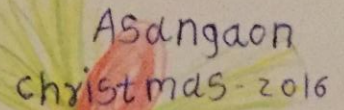 Asangaon
christmas-2016